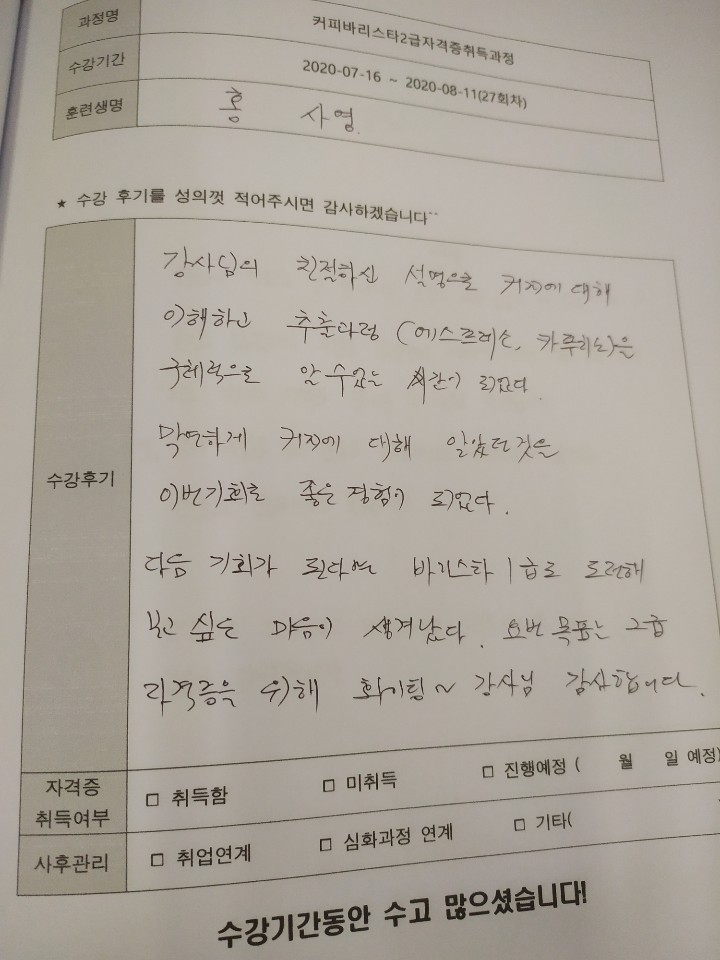 과정명 커피바리스타2급자격증취득과정
수강기간 2020-07-16 ~ 2020-08-11(27회차)
훈련생명 홍 사영
★ 수강 후기를 성의껏 적어주시면 감사하겠습니다^^
강사님의 친절하신 설명으로 커피에 대해
이해하고 추출과정 (에스프레소, 카푸치노)을
구체적으로 알 수 있는 시간이 되었다.
막연하게 커피에 대해 알았던 것을
수강후기
이번기회로 좋은 경험이 되었다.
다음 기회가 된다면 바리스타 1급로 도전해
보고 싶은 마음이 생겨났다. 요번 목표는 2급
자격증을 위해 화이팅~ 강사님 감사합니다.
자격증 취득여부 □ 취득함 □ 미취득 □ 진행예정 ( 월 일 예정)
사후관리 □ 취업연계 □ 심화과정 연계 □ 기타(
수강기간동안 수고 많으셨습니다!